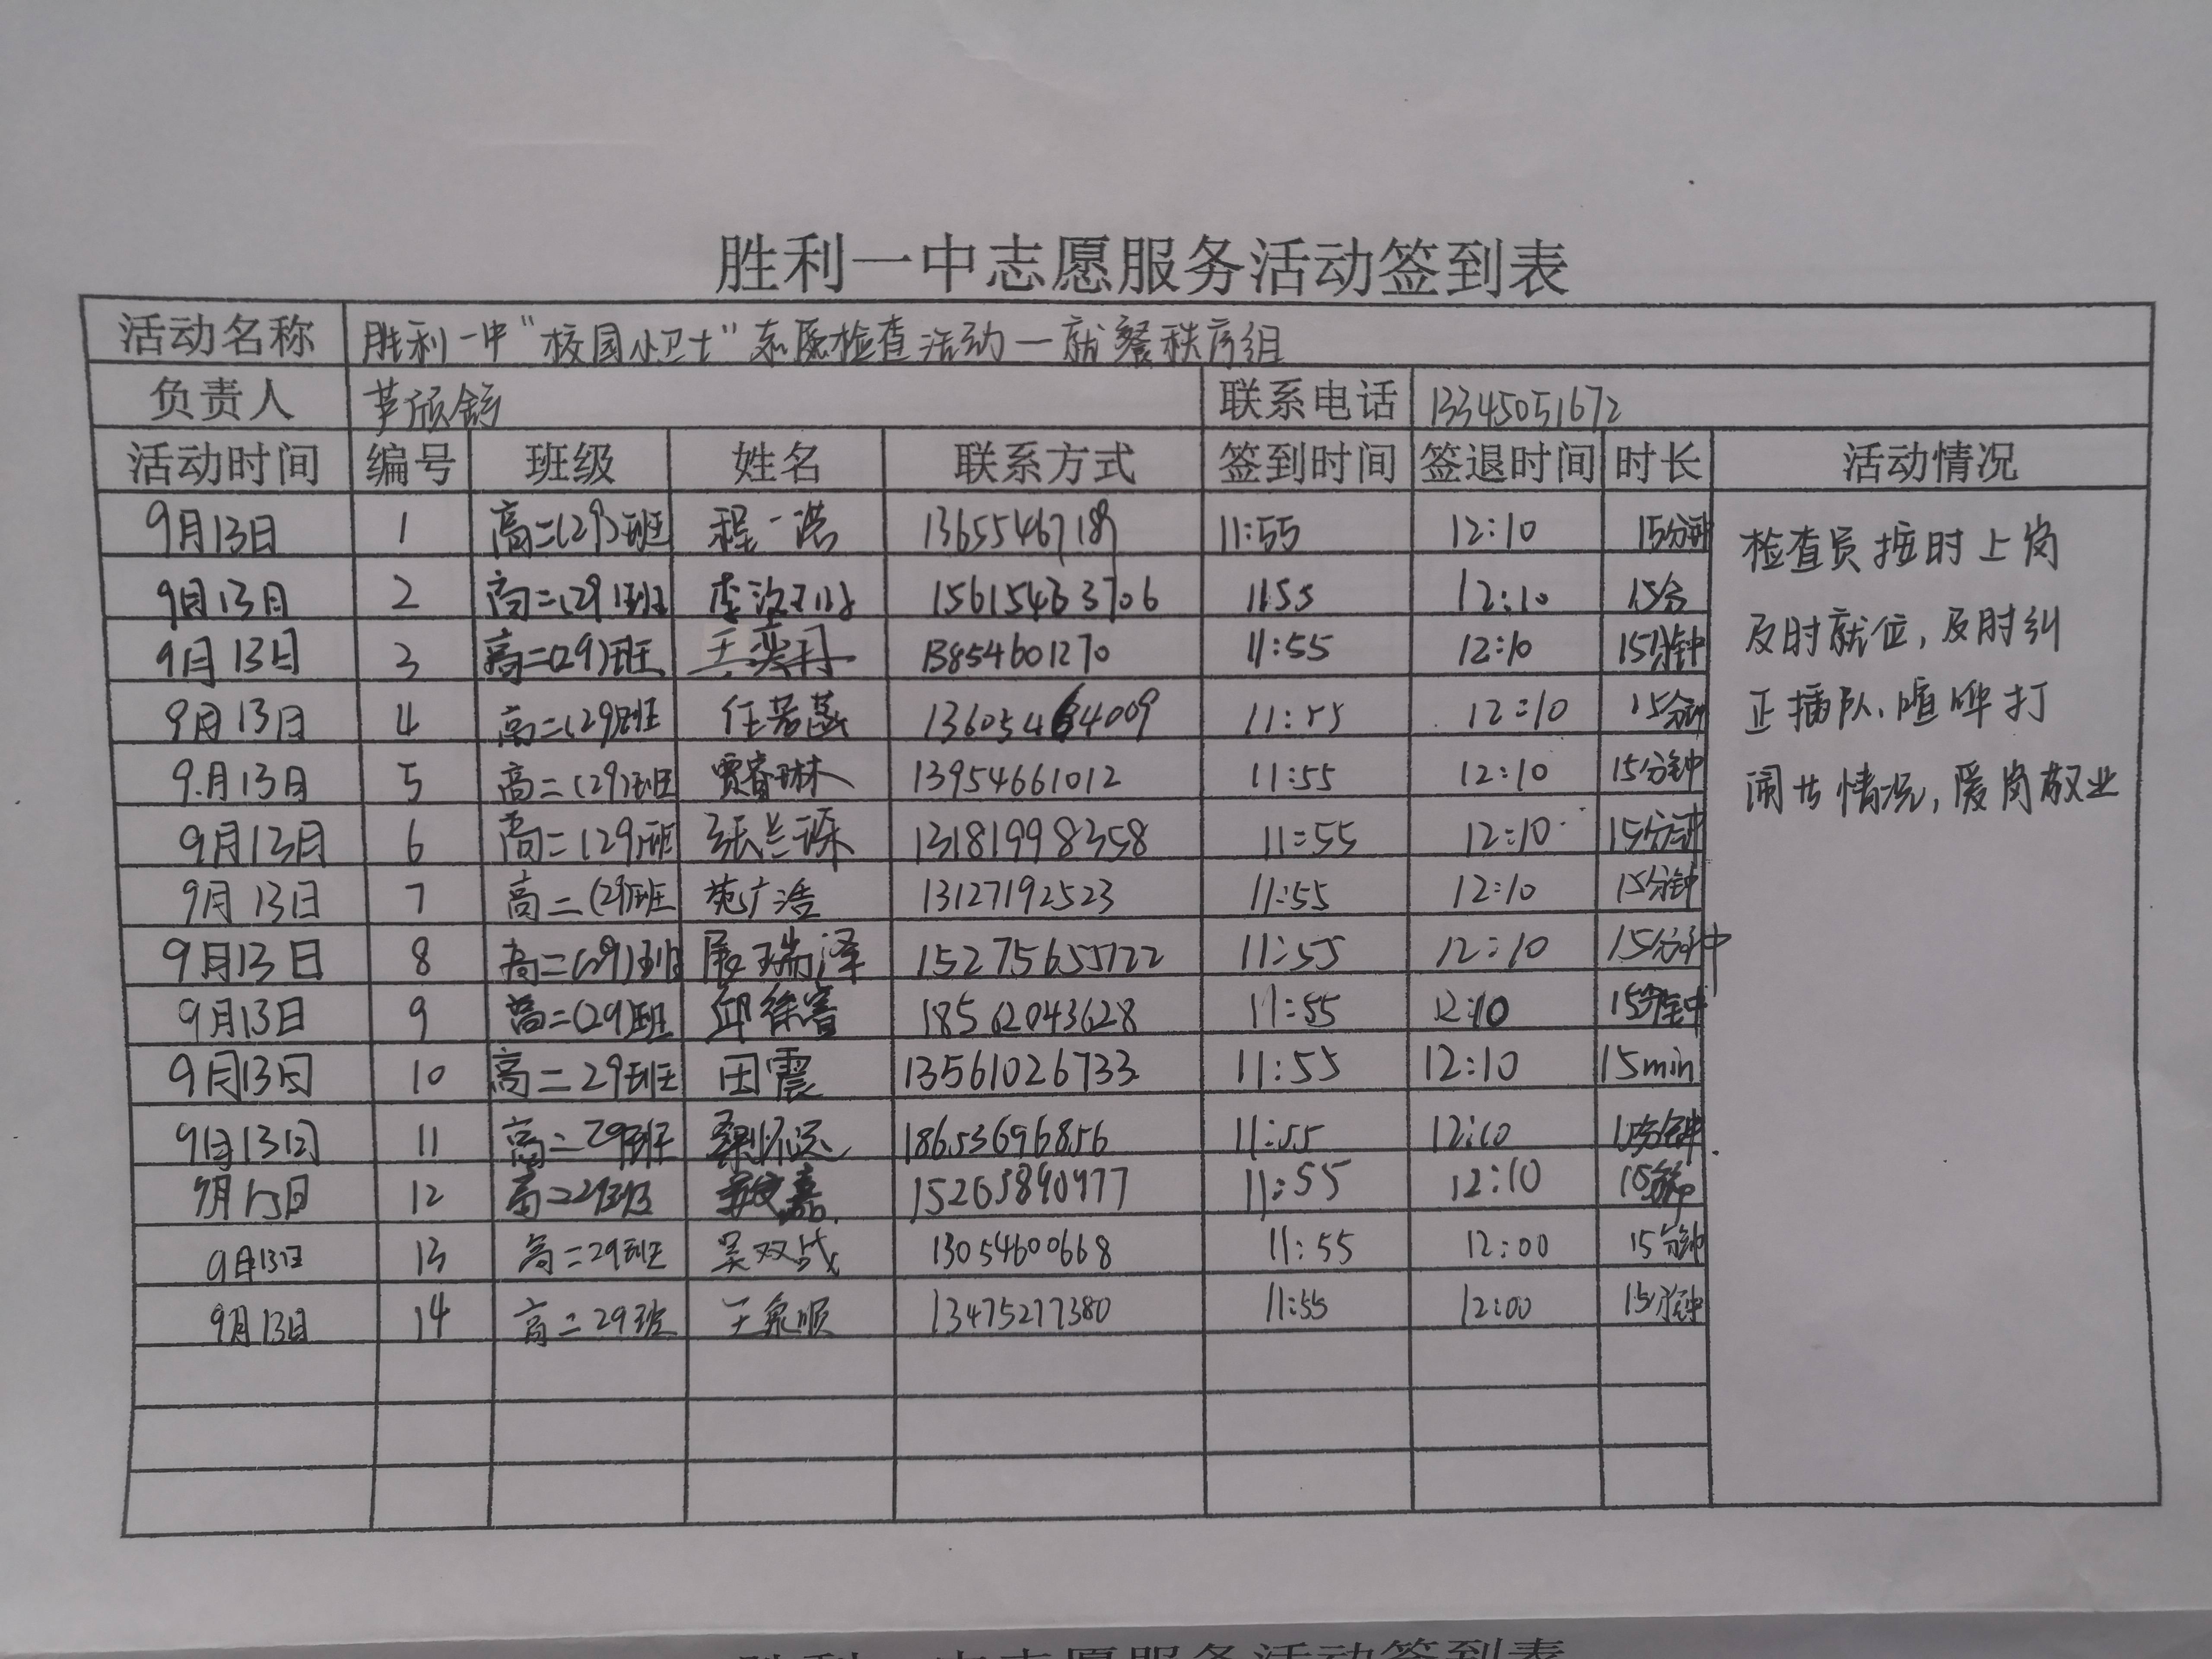 胜利一中志愿服务活动签到表
活动名称 胜利一中“校园小卫士”志愿检查活动—就餐秩序组
负责人 联系电话 13345051672
活动时间 编号 班级 姓名 联系方式 签到时间 签退时间 时长 活动情况
9月13日 1 高二(29)班 程一浩 11:55 12:10 15分钟
9月13日 2 高二(29)班 15615463706 11:55 12:10 15分
9月13日 3 高二(29)班 13854601270 11:55 12:10 15分钟
9月13日 4 高二(29)班 任若菡 11:55 12:10 15分钟
9月13日 5 高二(29)班 贾睿琳 13954661012 11:55 12:10 15分钟
9月13日 6 高二(29)班 张兰 13181998358 11:55 12:10 15分钟
9月13日 7 高二(29)班 苑广浩 13127192523 11:55 12:10 15分钟
9月13日 8 高二(29)班 展瑞泽 15275655722 11:55 12:10 15分钟
9月13日 9 高二(29)班 邱徐睿 18562043628 11:55 12:10 15分钟
9月13日 10 高二29班 田震 13561026733 11:55 12:10 15min
9月13日 11 高二29班 18653696856 11:55 12:10 15分钟
9月13日 12 高二29班 11:55 12:10
9月13日 13 高二29班 吴双战 13054600668 11:55 12:00 15分钟
9月13日 14 高二29班 王泉顺 13475217380 11:55 12:00 15分钟
检查员按时上岗
及时就位,及时纠
正插队、喧哗打
闹等情况,爱岗敬业
胜利一中志愿服务活动签到表